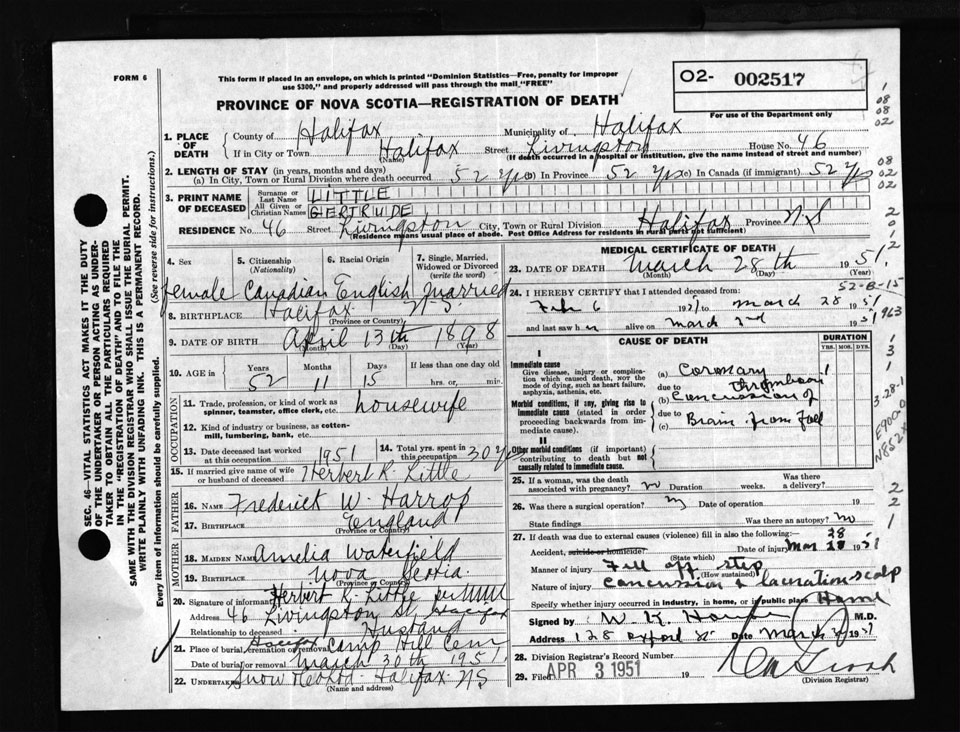 FORM 6
This form if placed in an envelope, on which is printed "Dominion Statistics—Free, penalty for improper
use $300," and properly addressed will pass through the mail "FREE"
O2- 002517
For use of the Department only
PROVINCE OF NOVA SCOTIA—REGISTRATION OF DEATH
1. PLACE OF DEATH { County of Halifax Municipality of Halifax
If in City or Town Halifax Street Livingston House No. 46
(Name) (If death occurred in a hospital or institution, give the name instead of street and number)
2. LENGTH OF STAY (in years, months and days)
(a) In City, Town or Rural Division where death occurred 52 yrs (b) In Province 52 yrs (c) In Canada (if immigrant) 52 yrs
3. PRINT NAME OF DECEASED { Surname or Last Name LITTLE
All Given or Christian Names GERTRUDE
RESIDENCE No. 46 Street Livingston City, Town or Rural Division Halifax Province NS
(Residence means usual place of abode. Post Office Address for residents in rural parts not sufficient)
4. Sex 5. Citizenship (Nationality) 6. Racial Origin 7. Single, Married, Widowed or Divorced (write the word)
female Canadian English married
8. BIRTHPLACE Halifax N.S.
(Province or Country)
9. DATE OF BIRTH April 13th 1898
(Month) (Day) (Year)
10. AGE in { Years Months Days If less than one day old
52 11 15 hrs. or, min.
OCCUPATION
11. Trade, profession, or kind of work as spinner, teamster, office clerk, etc. housewife
12. Kind of industry or business, as cotton-mill, lumbering, bank, etc.
13. Date deceased last worked at this occupation 1951 14. Total yrs. spent in this occupation 30 y
15. If married give name of wife or husband of deceased Herbert K. Little
FATHER
16. NAME Frederick W. Harrop
17. BIRTHPLACE England
(Province or Country)
MOTHER
18. MAIDEN NAME Amelia Waterfield
19. BIRTHPLACE Nova Scotia
(Province or Country)
20. Signature of informant Herbert K. Little
Address 46 Livingston St. Halifax
Relationship to deceased Husband
21. Place of burial, cremation or removal Halifax Camp Hill Cem
Date of burial or removal March 30th 1951
22. UNDERTAKER Snow Halifax NS
(Name and address)
MEDICAL CERTIFICATE OF DEATH
23. DATE OF DEATH March 28th 1951
(Month) (Day) (Year)
24. I HEREBY CERTIFY that I attended deceased from:
Feb 6 1951 to March 28 1951
and last saw h er alive on March 1951
CAUSE OF DEATH
DURATION
YRS. MOS. DYS.
I
Immediate cause
Give disease, injury or complication which caused death, not the mode of dying, such as heart failure, asphyxia, asthenia, etc.
(a) Coronary Thrombosis
due to
Morbid conditions, if any, giving rise to immediate cause (stated in order proceeding backwards from immediate cause).
(b) Concussion of
due to
(c) Brain from Fall
II
Other morbid conditions (if important) contributing to death but not causally related to immediate cause.
25. If a woman, was the death associated with pregnancy? no Duration weeks. Was there a delivery?
26. Was there a surgical operation? Date of operation 19
State findings Was there an autopsy? no
27. If death was due to external causes (violence) fill in also the following:—
Accident, suicide or homicide? Date of injury Mar 28 1951
(State which)
Manner of injury Fell off step
(How sustained)
Nature of injury Concussion & laceration scalp
Specify whether injury occurred in Industry, in home, or in public place Home
Signed by W. K. House M.D.
Address 128 Oxford St Date March 1951
28. Division Registrar's Record Number
29. Filed APR 3 1951 19
(Division Registrar)
SEC. 46 VITAL STATISTICS ACT MAKES IT THE DUTY
OF THE UNDERTAKER OR PERSON ACTING AS UNDER-
TAKER TO OBTAIN ALL THE PARTICULARS REQUIRED
IN THE "REGISTRATION OF DEATH" AND TO FILE THE
SAME WITH THE DIVISION REGISTRAR WHO SHALL ISSUE THE BURIAL PERMIT.
WRITE PLAINLY WITH UNFADING INK. THIS IS A PERMANENT RECORD.
Every item of information should be carefully supplied. (See reverse side for instructions.)
1
08
08
02
08
02
02
2
0
1
2
52-B-15
1963
1
3
1
3-28-1
E900-0
N852
2
2
1